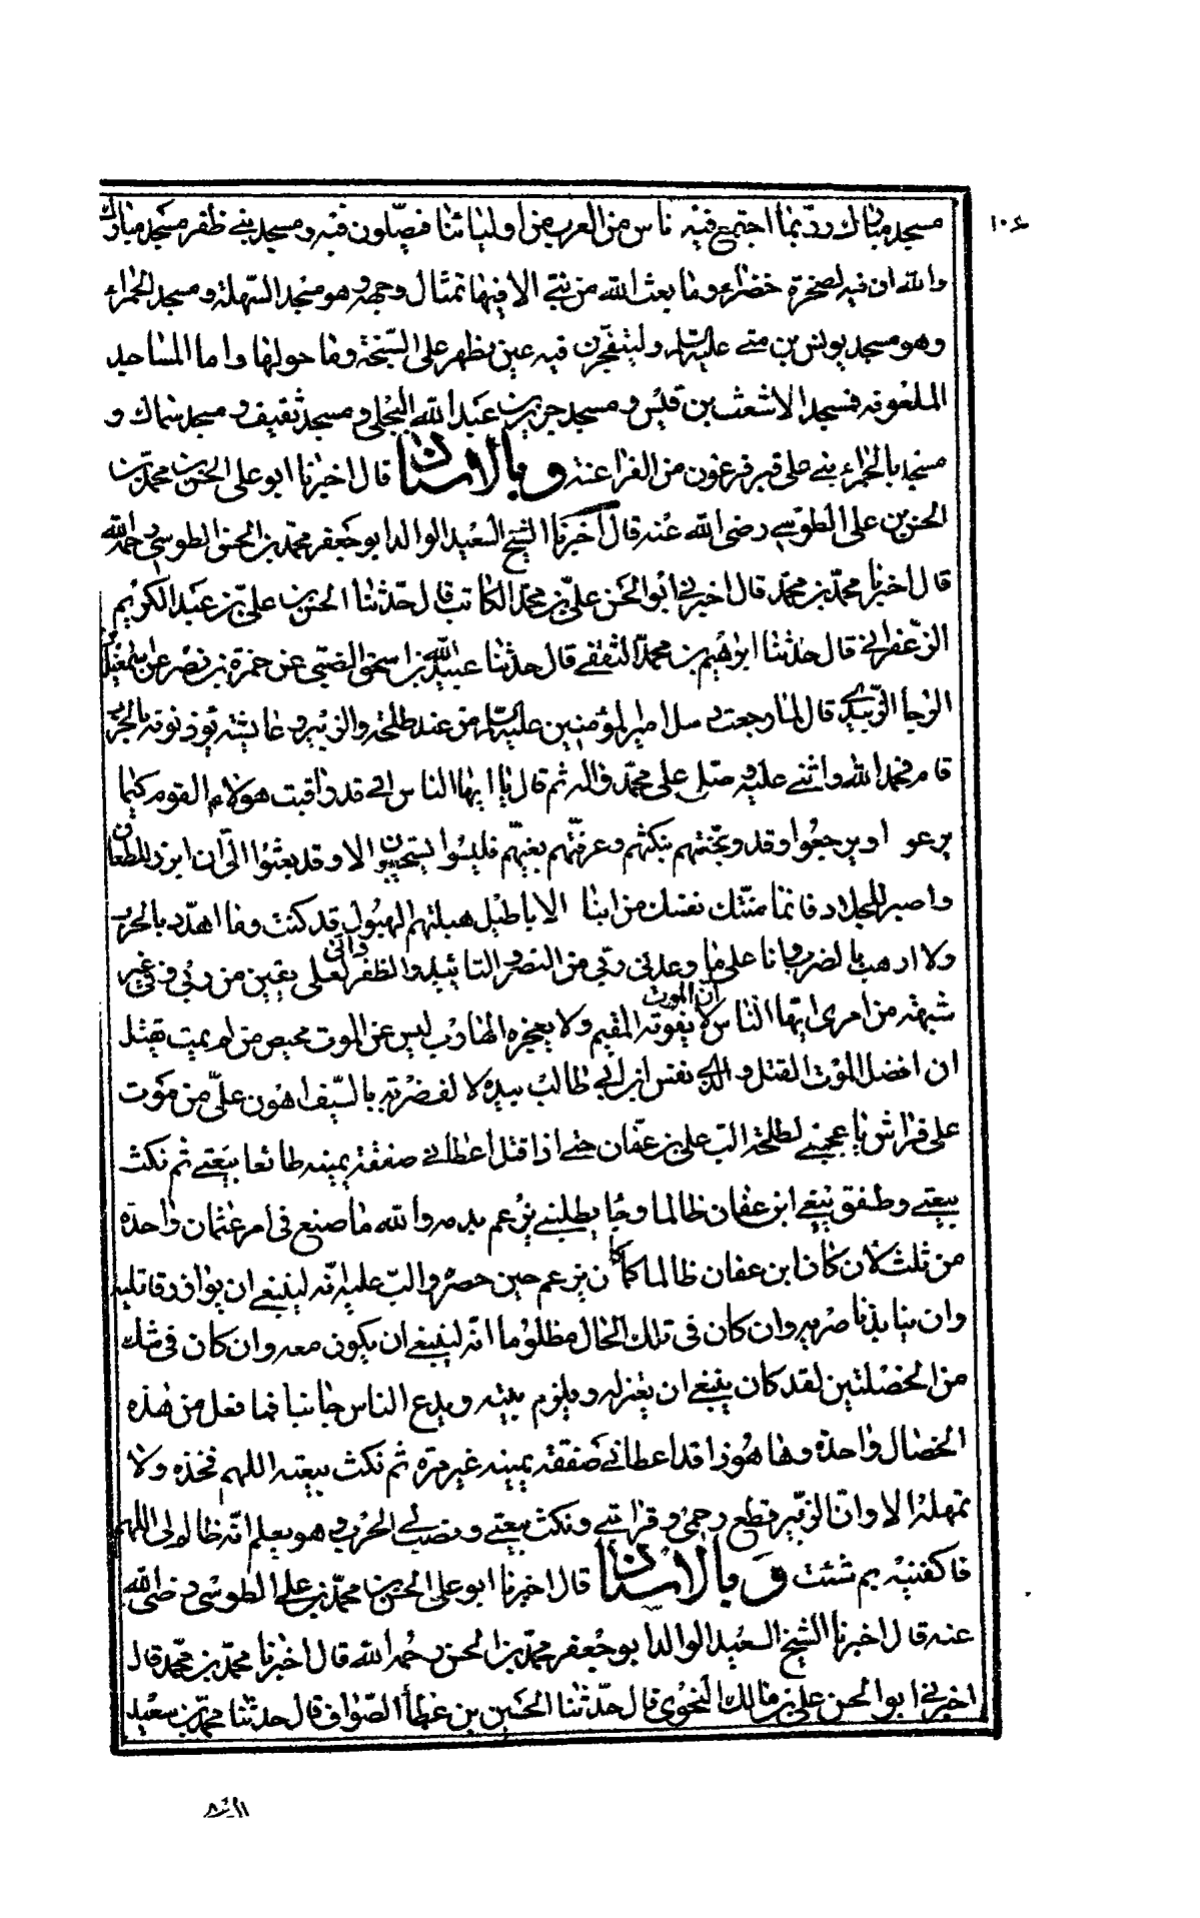 ١٠٦
مسجد مبارك ربّما اجتمع فيه ناس من العرب من أوليائنا فيصلّون فيه ومسجد بنى ظفر مسجد مبارك
والله ان فيه لصخرة خضراء وما بعث الله من نبى الا فيها تمثال وجهه وهو مسجد السّهلة ومسجد الحمراء
وهو مسجد يونس بن متى عليه السلام ولينفجرن فيه عين يظهر على السّبخة وما حولها واما المساجد
الملعونه فمسجد الاشعث بن قيس ومسجد جرير بن عبد الله البجلى ومسجد ثقيف ومسجد سماك و
مسجد بالحمراء بنى على قبر فرعون من الفراعنة وبالاسناد قال اخبرنا ابو على الحسن بن محمّد بن
الحسن بن على الطوسى رضى الله عنه قال أخبرنا الشيخ السعيد الوالد ابو جعفر محمّد بن الحسن الطوسى رحمه الله
قال اخبرنا محمّد بن محمّد قال اخبرنى ابو الحسن علىّ بن محمّد الكاتب قال حدّثنا الحسن بن علىّ بن عبد الكريم
الزعفرانى قال حدّثنا ابراهيم بن محمّد الثقفى قال حدثنا عبيد الله بن اسحق الضبّى عن حمزة بن نصر عن اسمعيل
الرجا الزّبيدى قال لما رجعت رسل امير المؤمنين عليه السلام من عند طلحة والزبير وعايشة يؤذنونه بالحرب
قام فحمد الله واثنى عليه وصلى على محمّد واله ثم قال يا ايها الناس انى قد راقبت هؤلاء القوم كيما
يرعووا ويرجعوا وقد وبّختهم بنكثهم وعرفتهم بغيهم فليسوا يستحيون الا وقد بعثوا الىّ ان ابرز للطعان
واصبر للجلاد فانما منّتك نفسك من ابنا الاباطيل هبلتهم الهبول قد كنت وما اهدّد بالحرب
ولا ارهب بالضرب وانا على ما وعدنى ربّى من النصر والتائييد والظفر وانى لعلى يقين من ربّى وفى غير
شبهة من امرى ايها الناس ان الموت لا يفوته المقيم ولا يعجزه الهارب ليس عن الموت محيص من لم يمت يقتل
ان افضل الموت القتل والذى نفس ابن ابى طالب بيده لالف ضربة بالسّيف اهون علىّ من موت
على فراش يا عجبى لطلحة الب على بن عفّان حتى اذا قتل اعطانى صفقة يمينه طائعا ببيعتى ثم نكث
بيعتى وطفق ينعى ابن عفان ظالما وجا يطلبنى يزعم بدمه والله ما صنع فى امر عثمان واحدة
من ثلث لان كان ابن عفان ظالما كما كان يزعم حين حصره والب عليه انّه لينبغى ان يوازر قاتليه
وان ينابذ ناصريه وان كان فى تلك الحال مظلوما انّه لينبغى ان يكون معه وان كان فى شك
من الخصلتين لقد كان ينبغى ان يعتزله ويلزم بيته ويدع الناس جانبا فما فعل من هذه
الخصال واحدة وها هو ذا قد اعطانى صفقة يمينه غير مرة ثم نكث بيعته اللهم فخذه ولا
تمهله الا وانّ الزبير قطع رحمى وقرابتى ونكث بيعتى ونصب لى الحرب وهو يعلم انّه ظالم لى اللهم
فاكفنيه بم شئت وبالاسناد قال اخبرنا ابو على الحسن بن محمّد بن على الطوسى رضى الله
عنه قال اخبرنا الشيخ السعيد الوالد ابو جعفر محمّد بن الحسن رحمه الله قال اخبرنا محمّد بن محمّد قال
اخبرنى ابو الحسن على بن مالك النحوى قال حدّثنا الحسين بن عطأ الصّواف قال حدثنا محمّد بن سعيد